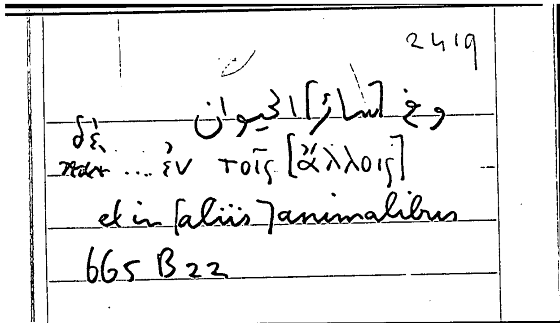 2419
وفي [سائر] الحيوان
δὲ ... ἐν τοῖς [ἄλλοις]
et in [aliis] animalibus
665 B 22